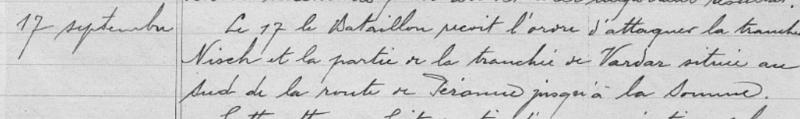 17 septembre Le 17 le Bataillon reçoit l'ordre d'attaquer la tranchée
Nisch et la partie de la tranchée de Vardar située au
sud de la route de Péronne jusqu'à la Somme.